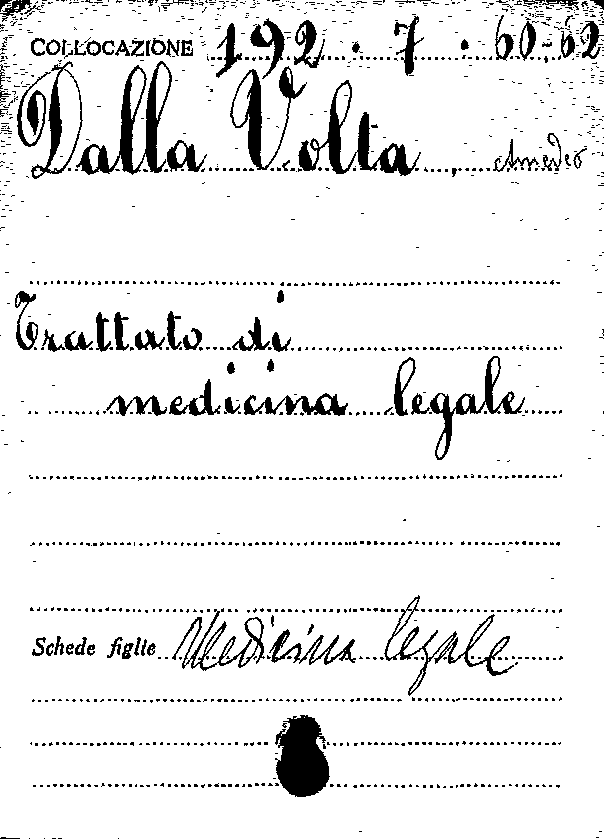 COLLOCAZIONE 192.7.60-62
Dalla Volta, Amedeo
Trattato di
medicina legale
Schede figlie Medicina legale